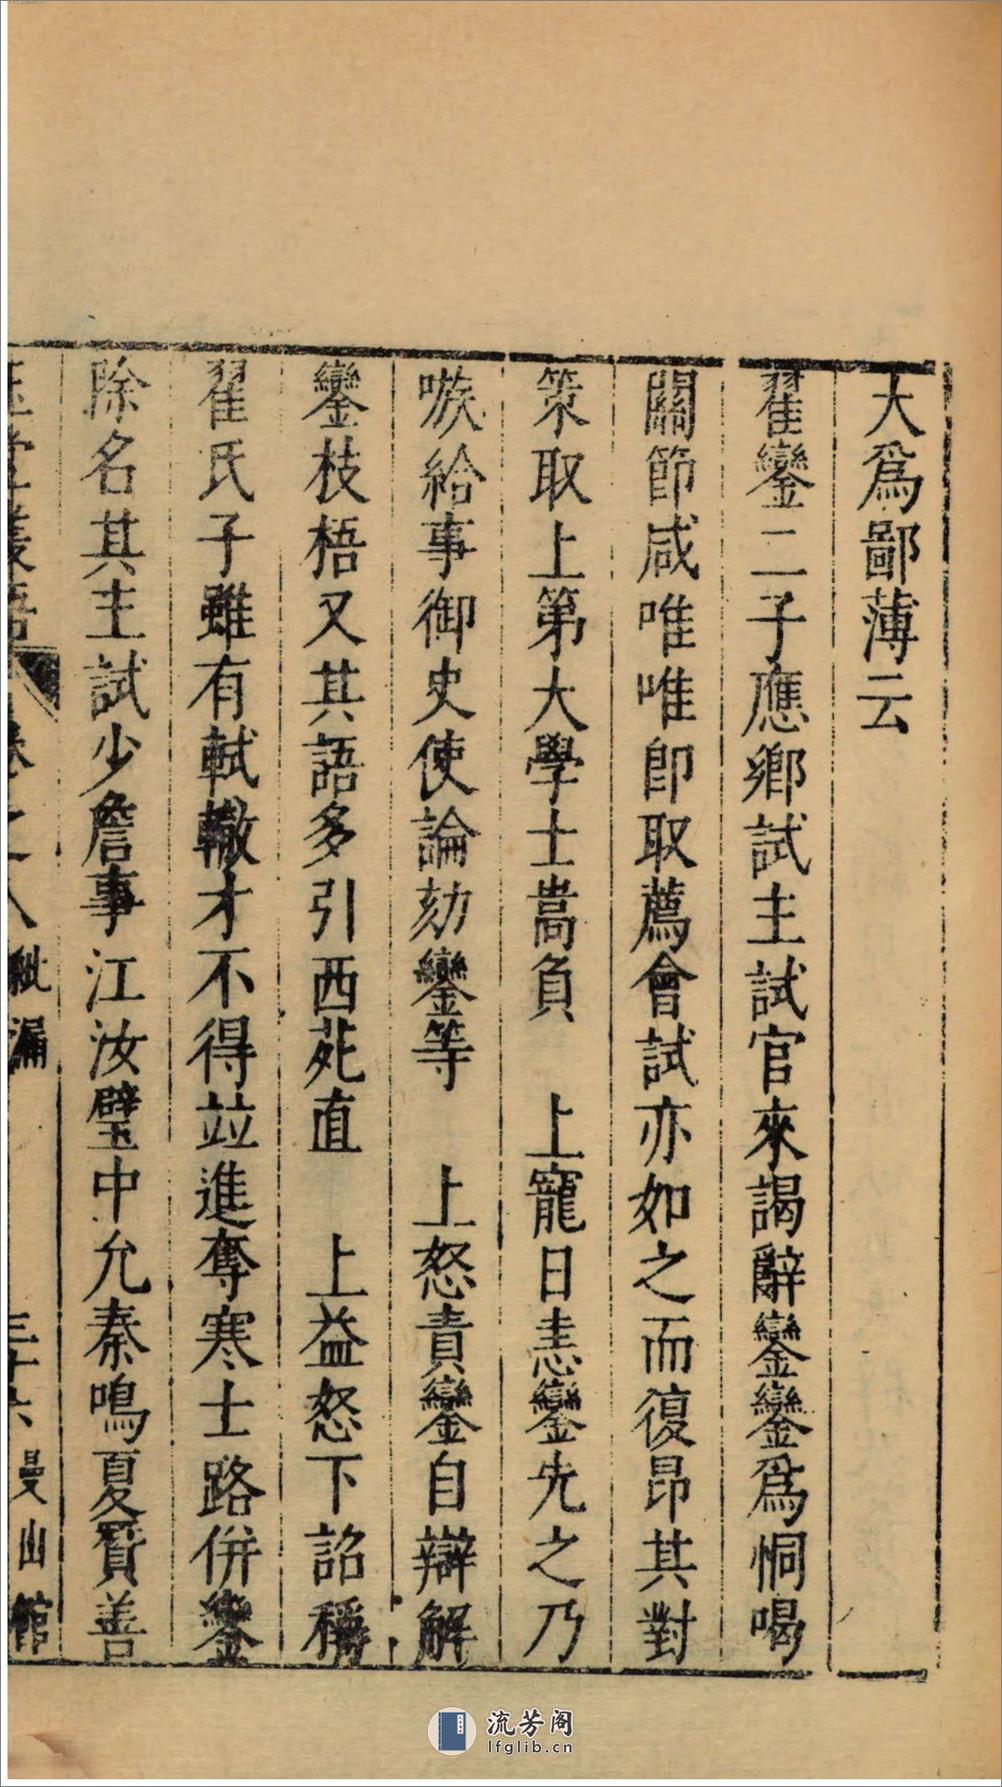 大爲鄙薄云
翟鑾二子應鄉試主試官來謁辭鑾鑾爲恫喝
關節咸唯唯卽取薦會試亦如之而復昂其對
策取上第大學士嵩負　上寵日恚鑾先之乃
嗾給事御史使論劾鑾等　上怒責鑾自辯解
鑾枝梧又其語多引西苑直　上益怒下詔稱
翟氏子雖有軾轍才不得竝進奪寒士路併鑾
除名其主試少詹事江汝璧中允秦鳴夏贊善
玉堂叢語 卷之八 紕漏 三十六 曼山館
流芳阁
lfglib.cn